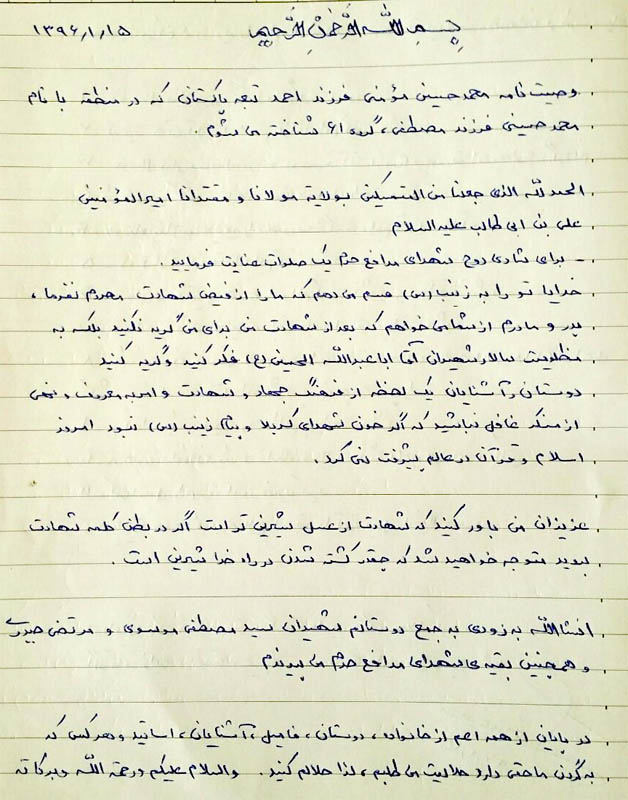 بسم الله الرحمن الرحیم ۱۳۹۶/۱/۱۵
وصیت نامه محمد حسین مؤمنی فرزند احمد تبعه پاکستان که در منطقه با نام
محمد حسینی فرزند مصطفی، گروه ۶۱ شناخته می شوم.
الحمدلله الذی جعلنا من المتمسکین بولایة مولانا و مقتدانا امیرالمؤمنین
علی بن ابی طالب علیه السلام
- برای شادی روح شهدای مدافع حرم یک صلوات عنایت فرمایید.
خدایا تو را به زینب (س) قسم می دهم که ما را از فیض شهادت محروم نفرما،
پدر و مادرم از شما می خواهم که بعد از شهادت من برای من گریه نکنید بلکه به
مظلومیت سالار شهیدان آقا اباعبدالله الحسین (ع) فکر کنید و گریه کنید
دوستان و آشنایان یک لحظه از فرهنگ جهاد و شهادت و امربه معروف و نهی
از منکر غافل نباشید که اگر خون شهدای کربلا و پیام زینب (س) نبود امروز
اسلام و قرآن در عالم پیشرفت نمی کرد.
عزیزان من باور کنید که شهادت از عسل شیرین تر است اگر در بطن کلمه شهادت
بروید متوجه خواهید شد که چقدر کشته شدن در راه خدا شیرین است.
انشاالله به زودی به جمع دوستانم شهیدان سید مصطفی موسوی و مرتضی حیدری
و همچنین بقیه ی شهدای مدافع حرم می پیوندم
در پایان از همه اعم از خانواده، دوستان، فامیل، آشنایان، اساتید و هر کس که
به گردن ما حقی دارد حلالیت می طلبم، لذا حلالم کنید. والسلام علیکم ورحمة الله وبرکاته